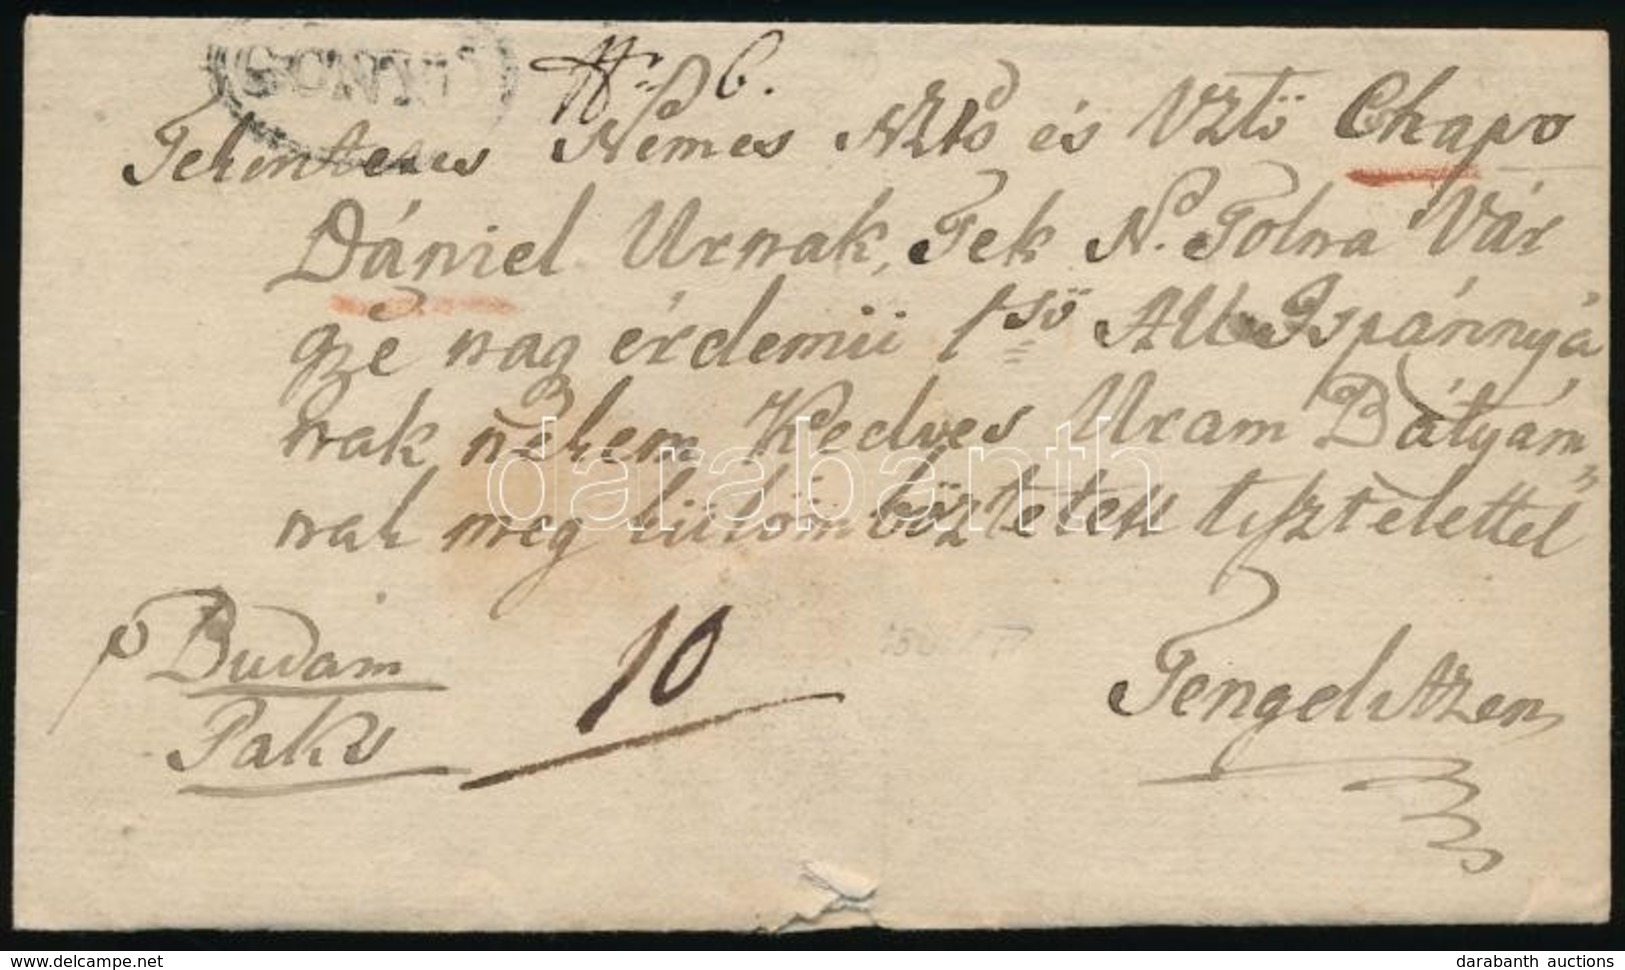 GÖNYŰ
Nr. 6.
Tekintetes Nemes Nztő és Vztő Chapo
Dániel Urnak, Tek N. Tolna Vár
gye nag érdemű 1ső All Ispánnyá
nak nékem Kedves Uram Bátyám-
nak meg külömböztetett tisztelettel
p Budam
Paks
10
Tengelitzen
darabanth
www.delcampe.net
darabanth auctions